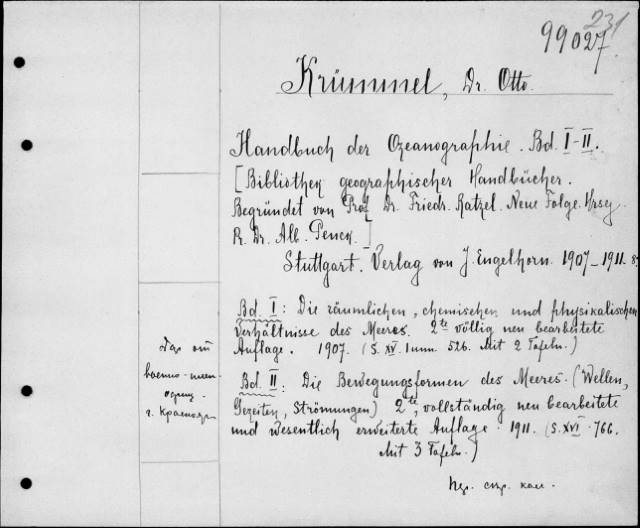 231
99027
Krümmel, Dr. Otto.
Handbuch der Ozeanographie. Bd. I-II.
[Bibliothek geographischer Handbücher.
Begründet von Prof. Dr. Friedr. Ratzel. Neue Folge. Hrsg.
Dr. Alb. Penck.]
Stuttgart. Verlag von J. Engelhorn. 1907-1911. 8°
Bd. I: Die räumlichen, chemischen und physikalischen
Verhältnisse des Meeres. 2te völlig neu bearbeitete
Auflage. 1907. (S. XV. 526. Mit 2 Tafeln.)
Bd. II: Die Bewegungsformen des Meeres. (Wellen,
Gezeiten, Strömungen) 2te, vollständig neu bearbeitete
und wesentlich erweiterte Auflage. 1911. (S. XVI. 766.
Mit 3 Tafeln.)
Дар от
военно-плен
офиц.
г. Красноярск